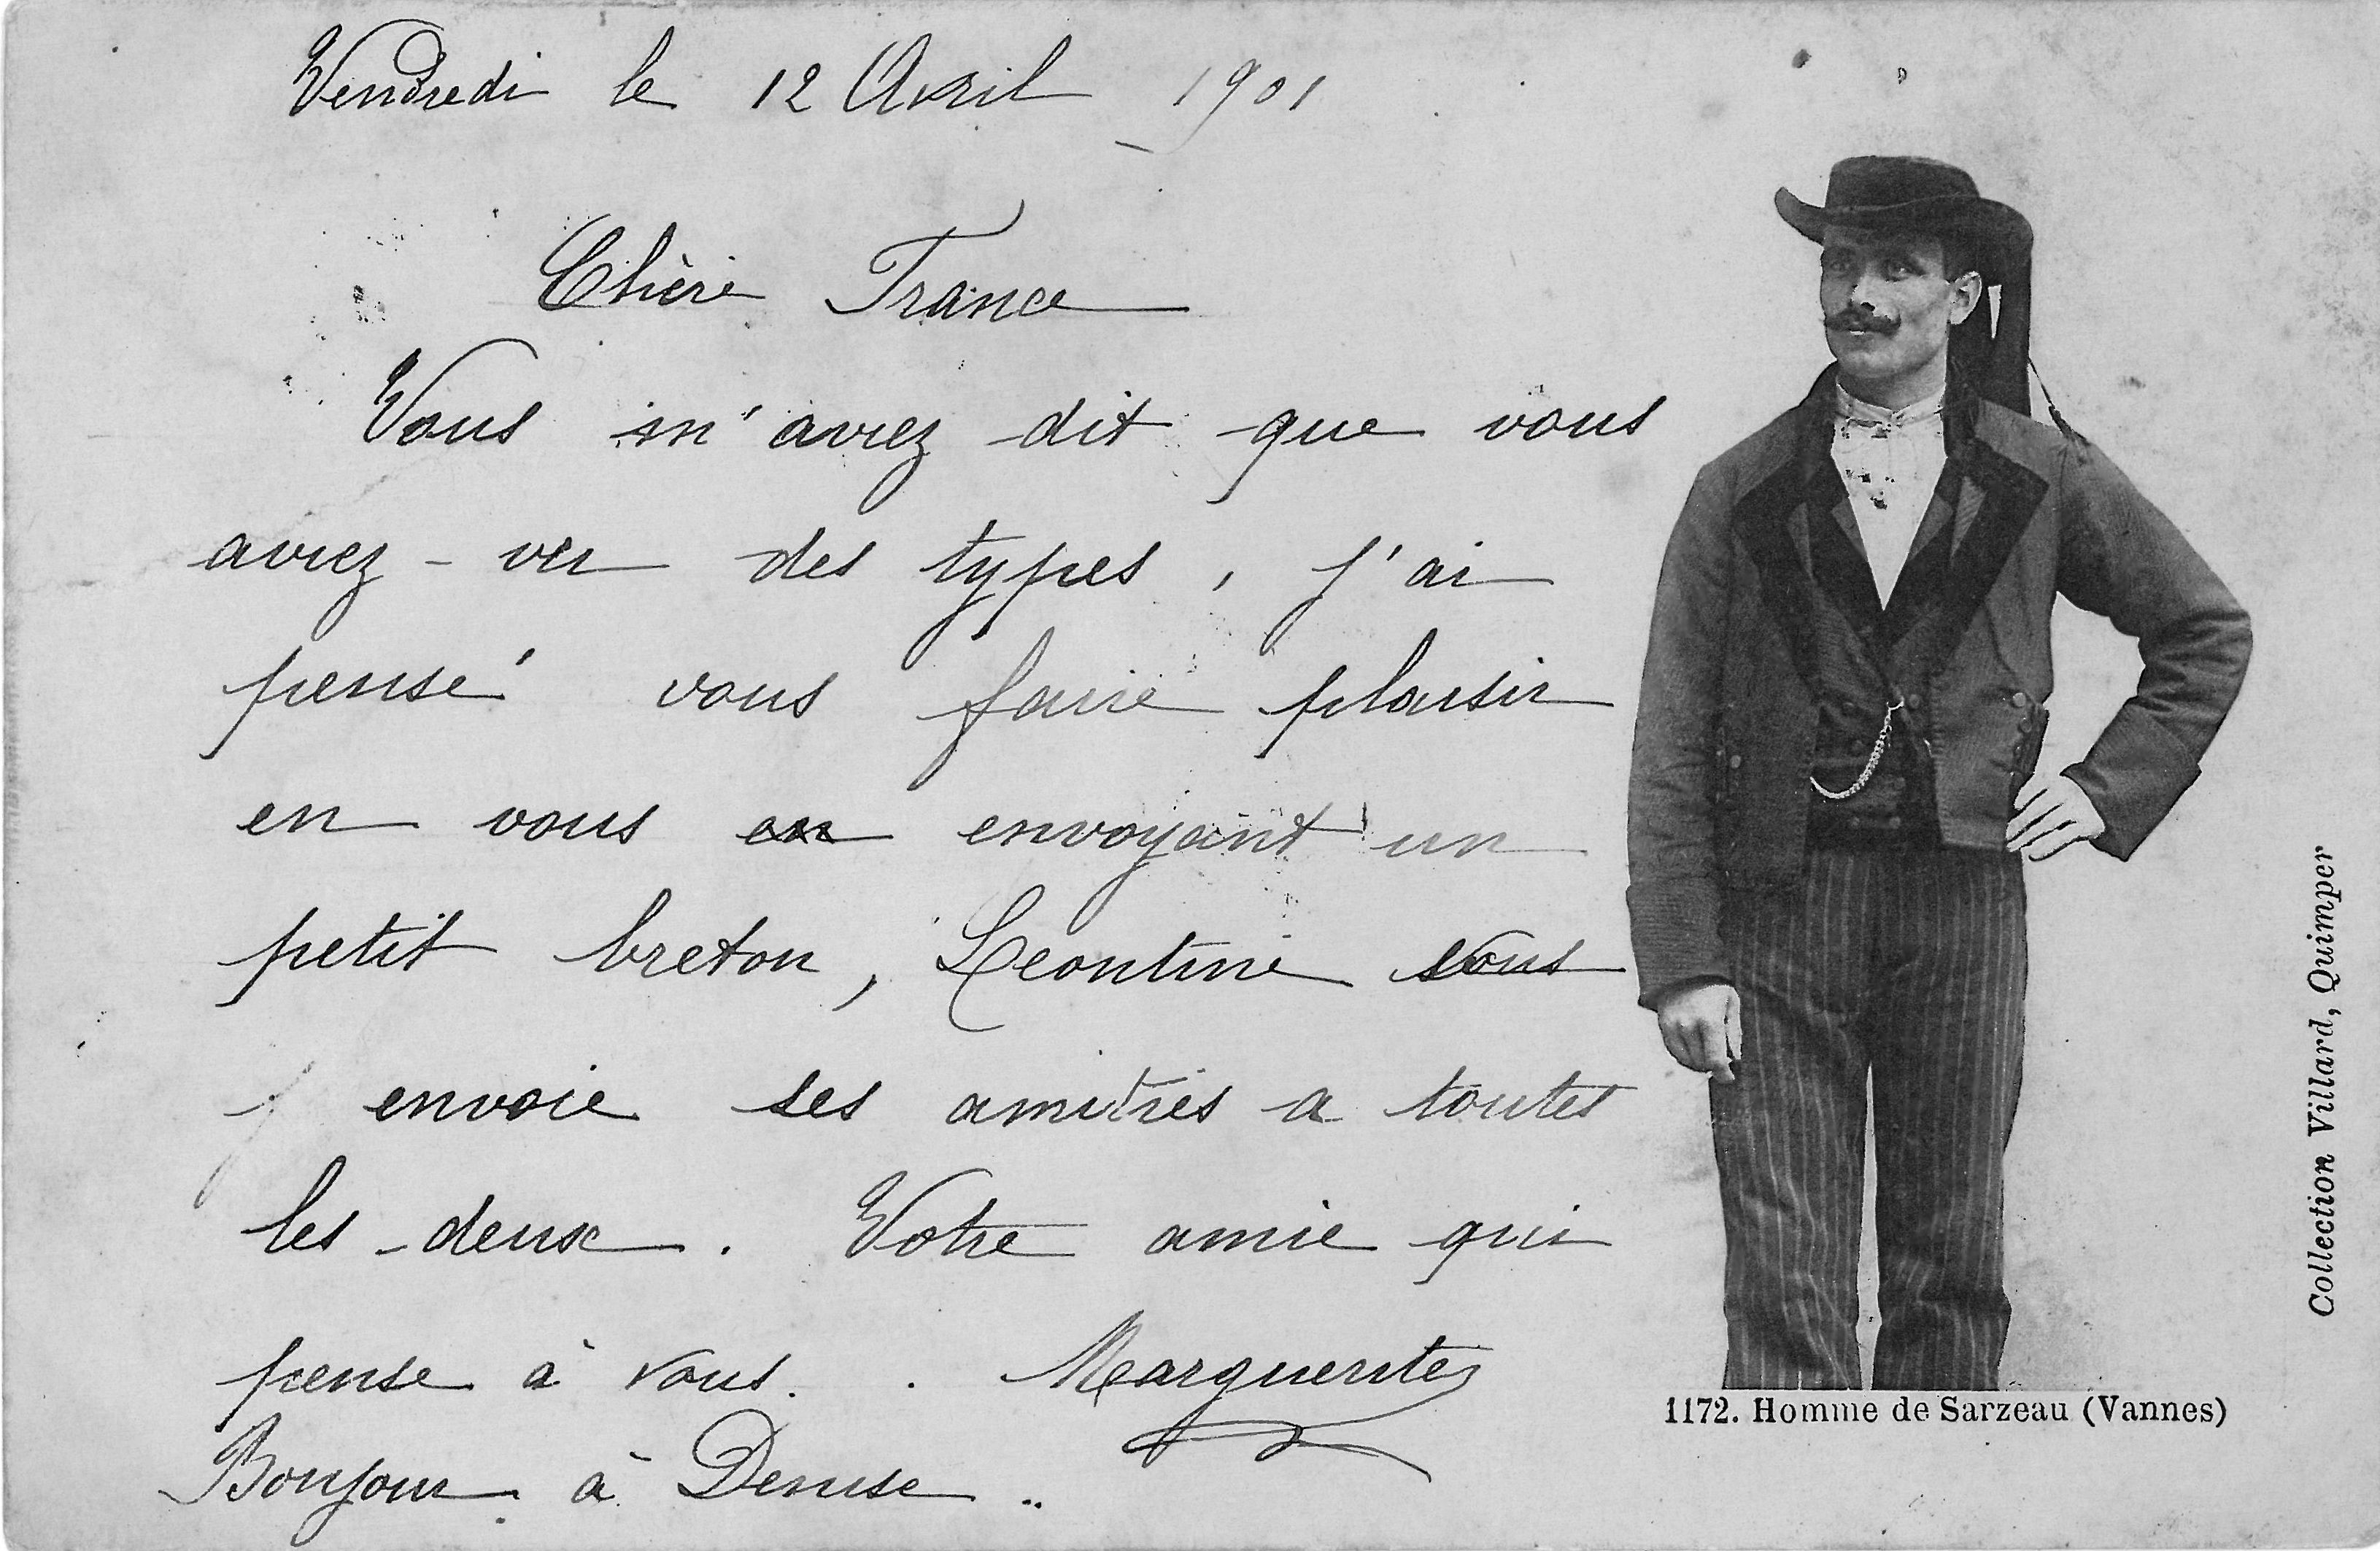 Vendredi le 12 Avril 1901
Chère France
Vous m'aviez dit que vous
aviez - vu des types, j'ai
pensé vous faire plaisir
en vous en envoyant un
petit breton, Leontine vous
envoie ses amitiés a toutes
les deux. Votre amie qui
pense à vous. Marguerite
Bonjour à Denise ..
1172. Homme de Sarzeau (Vannes)
Collection Villard, Quimper